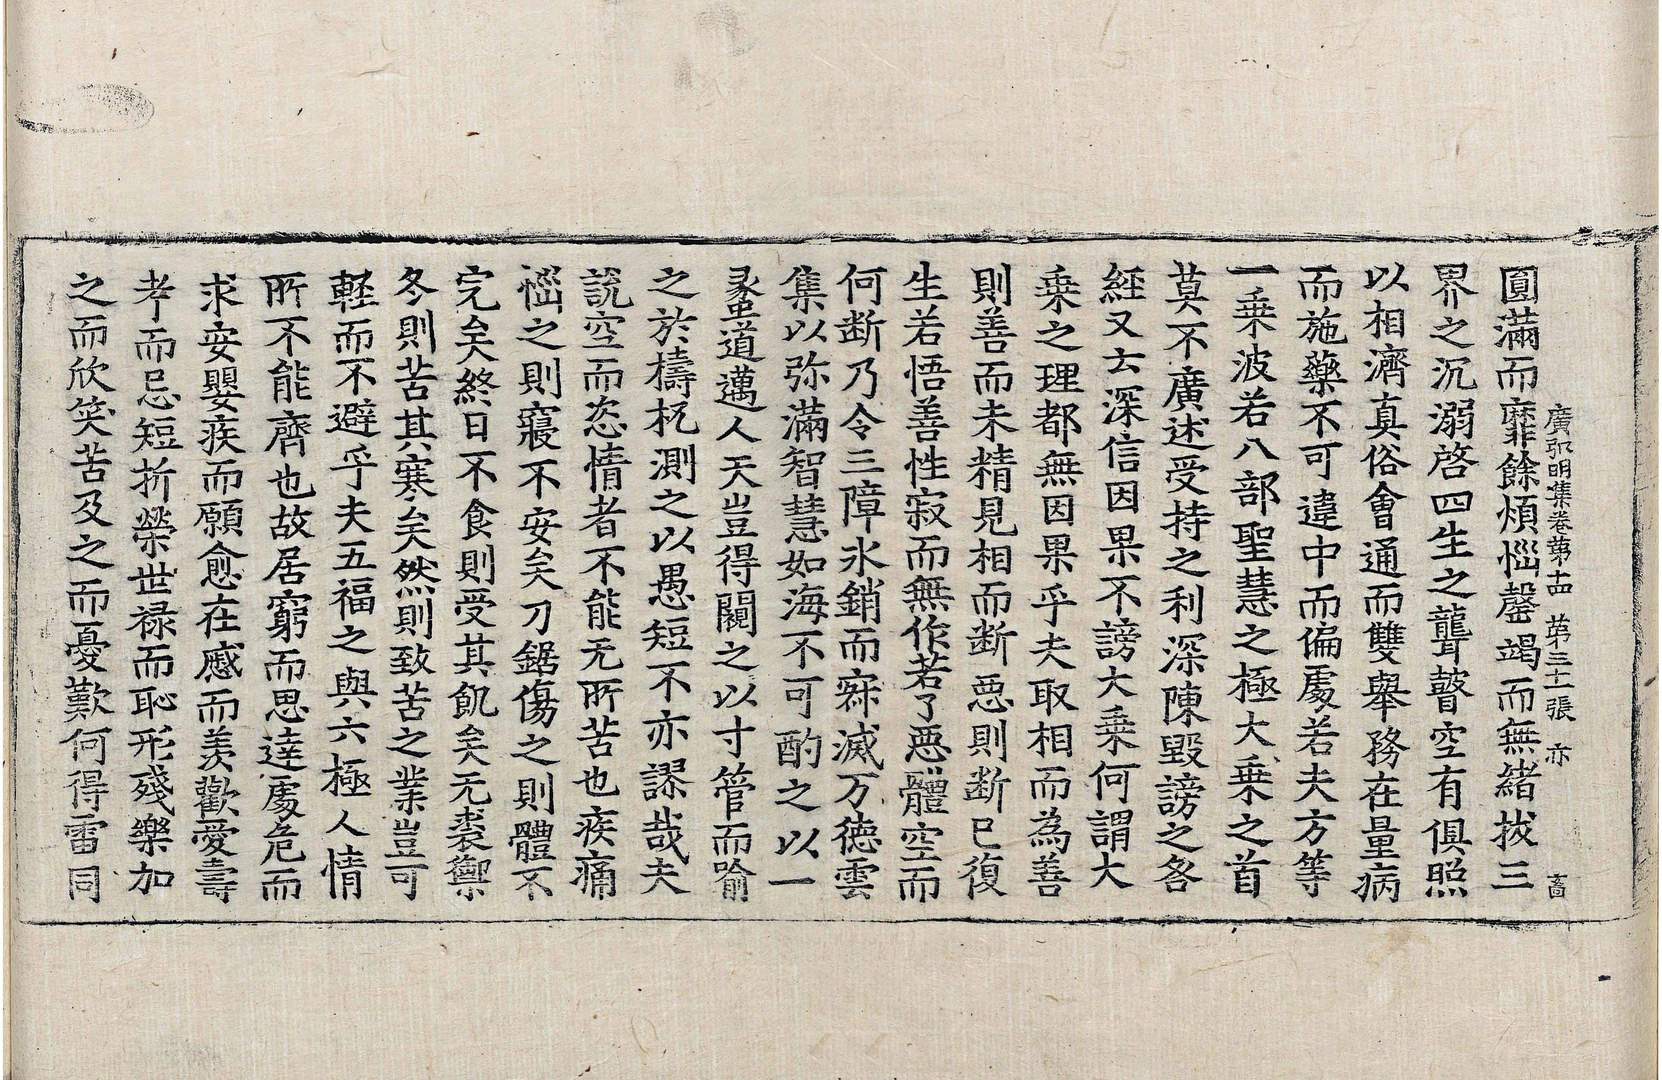 廣弘明集卷第十四 第三十一張 亦 畜
圓滿而靡餘煩惱罄竭而無緒拔三
界之沉溺啓四生之聾瞽空有俱照
以相濟真俗會通而雙舉務在量病
而施藥不可違中而偏處若夫方等
一乗波若八部聖慧之極大乗之首
莫不廣述受持之利深陳毀謗之咎
經又云深信因果不謗大乗何謂大
乗之理都無因果乎夫取相而為善
則善而未精見相而断惡則断已復
生若悟善性寂而無作若了惡體空而
何断乃令三障氷銷而寂滅万德雲
集以弥滿智慧如海不可酌之以一
蠡道邁人天豈得闚之以寸管而喻
之於檮杌測之以愚短不亦謬哉夫
說空而恣情者不能无所苦也疾痛
惱之則寢不安矣刀鋸傷之則體不
完矣終日不食則受其飢矣无裘禦
冬則苦其寒矣然則致苦之業豈可
輕而不避乎夫五福之與六極人情
所不能齊也故居窮而思達處危而
求安嬰疾而願愈在慼而羨歡愛壽
考而忌短折榮世禄而恥形殘樂加
之而欣笑苦及之而憂歎何得雷同